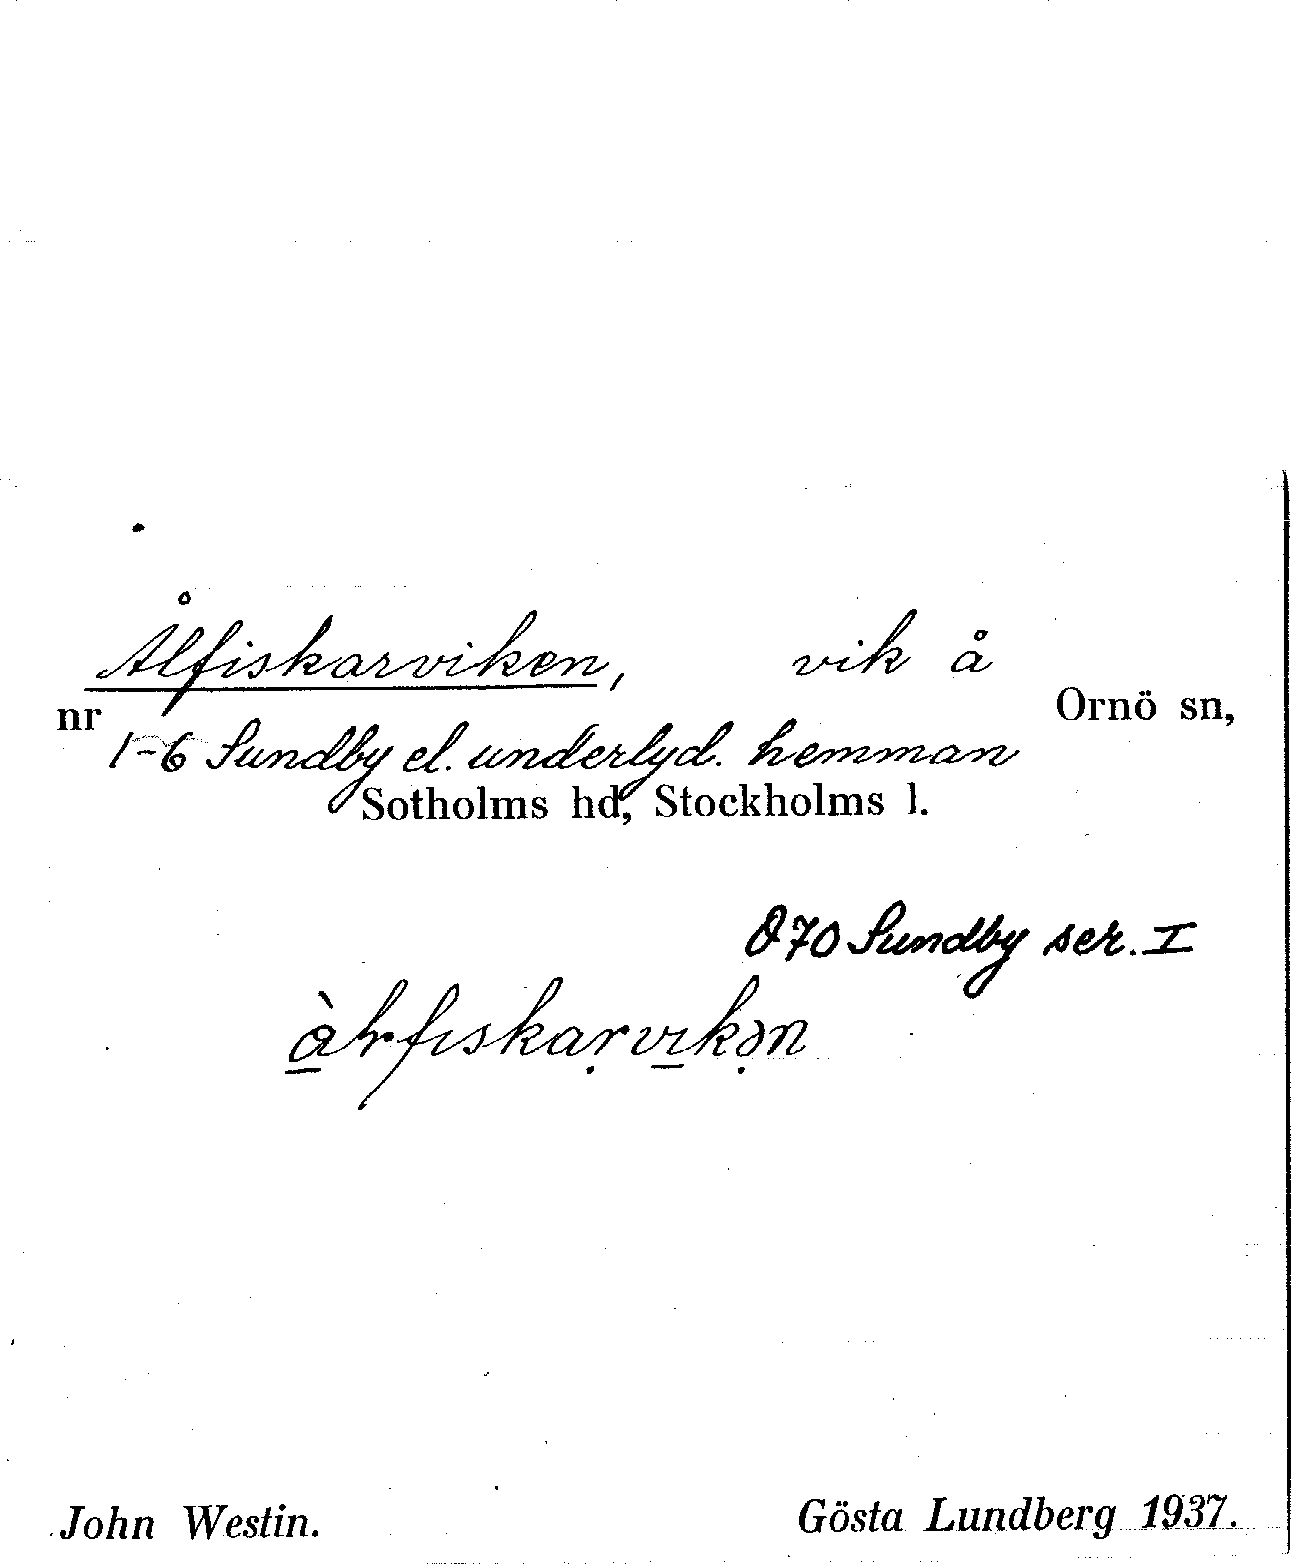 Ålfiskarviken, vik å
nr Ornö sn,
1-6 Sundby el. underlyd. hemman
Sotholms hd, Stockholms l.
070 Sundby ser. I
àlrfıskaṛvı̲kə̣n
John Westin. Gösta Lundberg 1937.